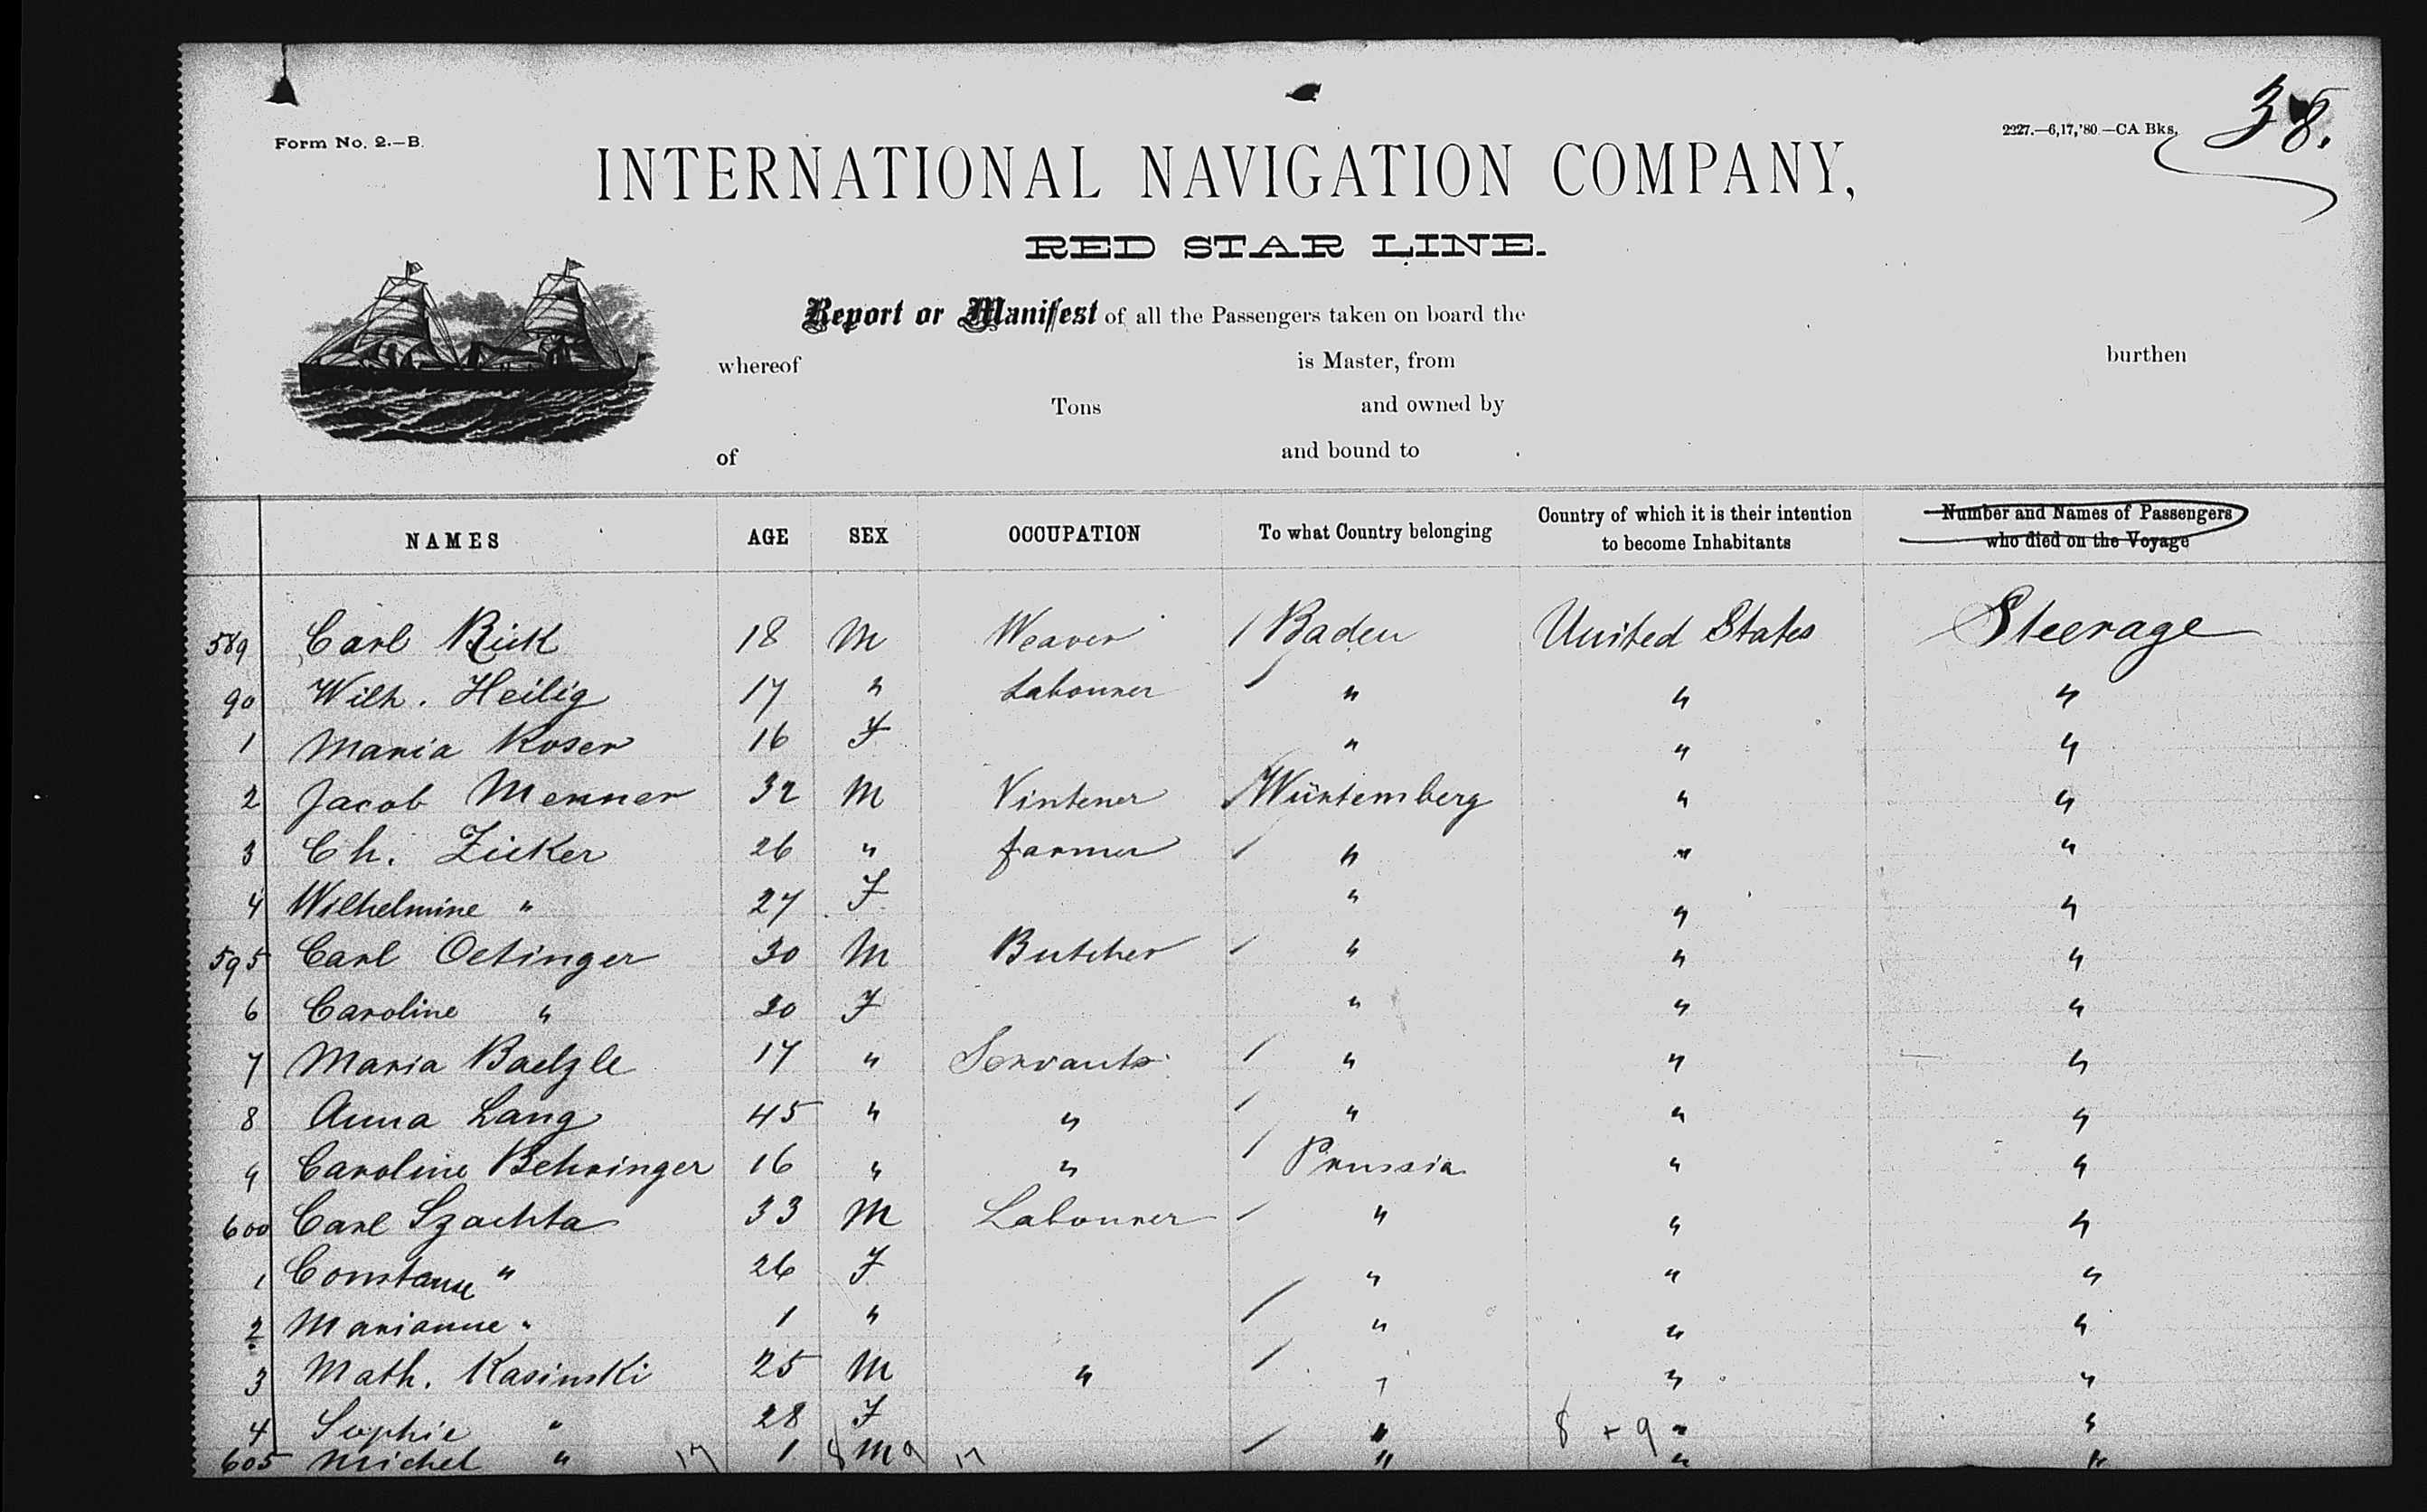 Form No. 2.—B.
2227.—6,17,'80.—CA Bks.
38.
INTERNATIONAL NAVIGATION COMPANY,
RED STAR LINE.
Report or Manifest of all the Passengers taken on board the
whereof is Master, from burthen
Tons and owned by
of and bound to
NAMES AGE SEX OCCUPATION To what Country belonging Country of which it is their intention to become Inhabitants Number and Names of Passengers who died on the Voyage
589 Carl Rick 18 M Weaver / Baden United States Steerage
90 Wilh. Heilig 17 " Labourer / " " "
1 Maria Koser 16 F " " "
2 Jacob Menner 32 M Vintener / Würtemberg " "
3 Ch. Zicker 26 " farmer / " " "
4 Wilhelmine " 27 F " " "
595 Carl Oetinger 30 M Butcher / " " "
6 Caroline " 30 F " " "
7 Maria Baelzle 17 " Servants / " " "
8 Anna Lang 45 " " / " " "
9 Caroline Behringer 16 " " / Prussia " "
600 Carl Szachta 33 M Labourer / " " "
1 Constanse " 26 F " " "
2 Marianne " 1 " / " " "
3 Math. Kasinski 25 M " / " " "
4 Sophie " 28 F " 8 + 9 " "
605 Michel " 17 1 8 M 9 17 / " " "